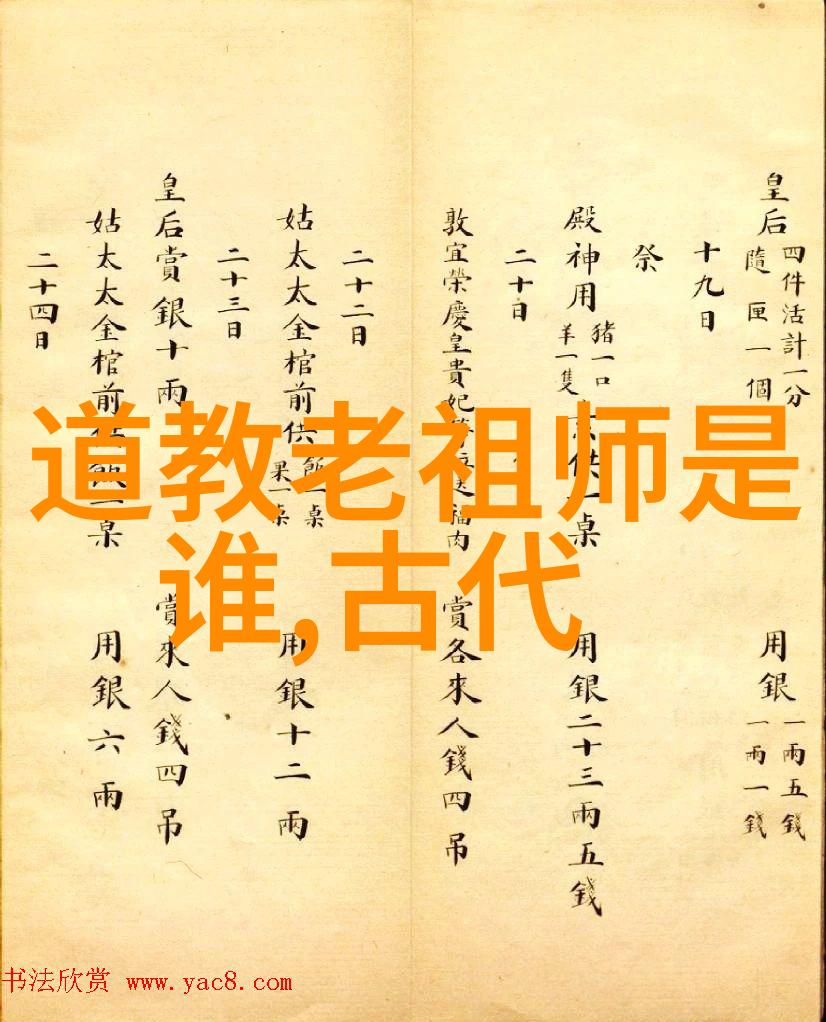 皇后 四件活計一分 隨匣一個 用銀 一兩五錢 一兩一錢
十九日
祭
殿神用 豬一口 羊一隻 供一桌 用銀二十三兩五錢
二十日
敦宜榮慶皇貴妃 福肉 賞各來人錢四吊
二十二日
姑太太金棺前供 飯一桌 果一桌 用銀十二兩
二十三日
皇后賞銀十兩 賞來人錢四吊
姑太太金棺前供飯一桌 用銀六兩
二十四日
道教老祖师是
谁,古代
书法欣赏 www.yac8.com